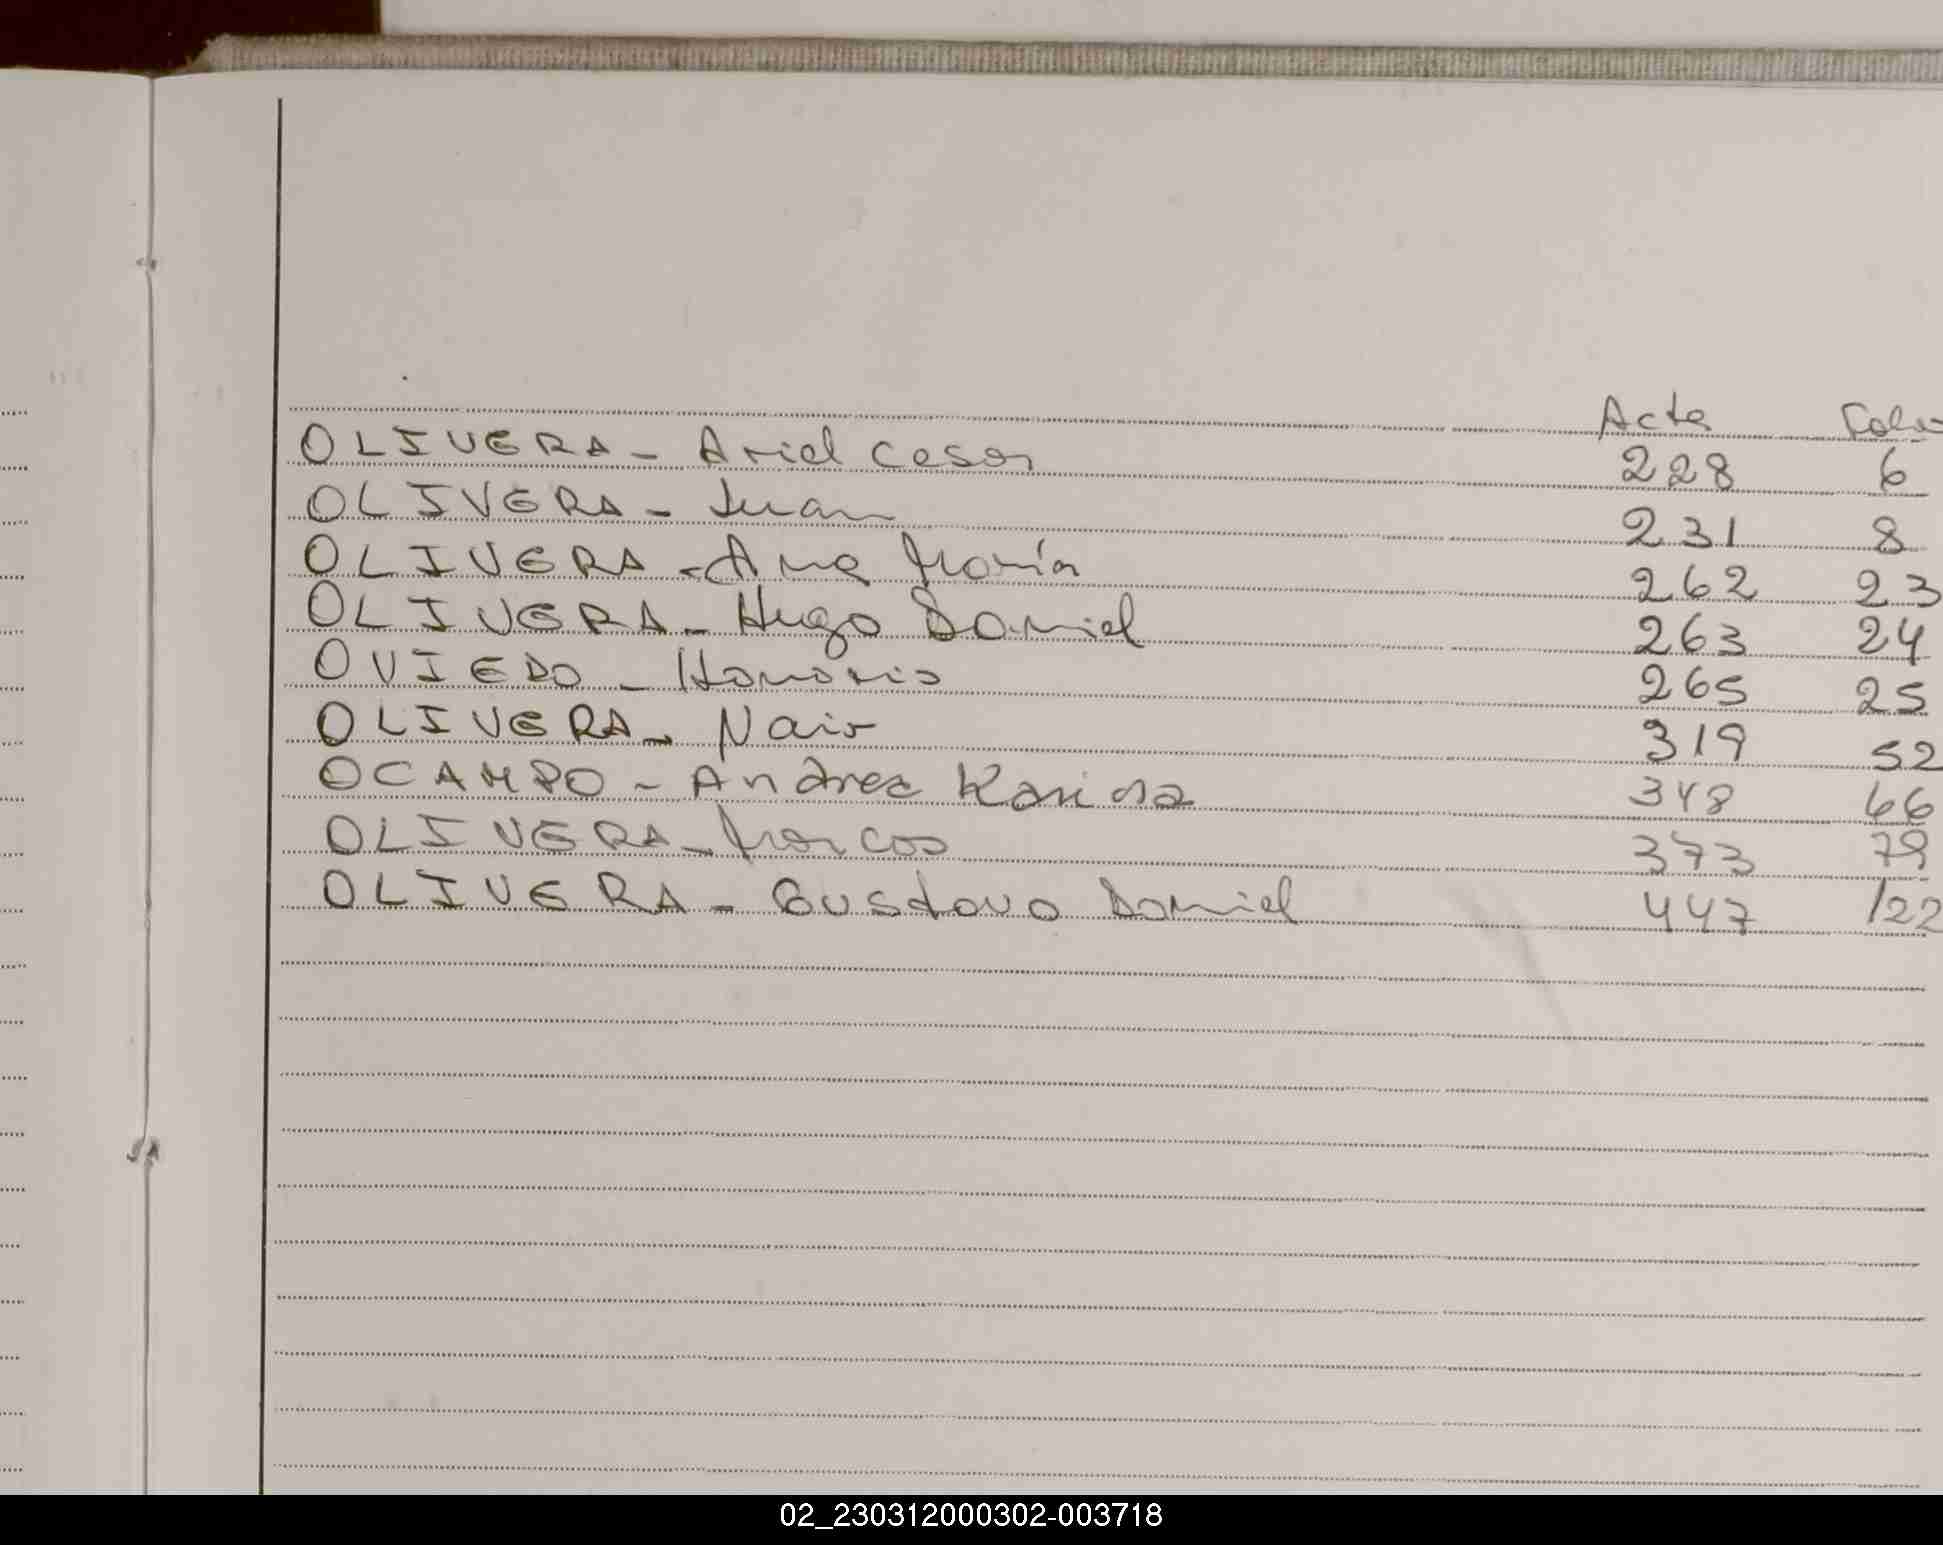 Acta Folio
OLIVERA - Ariel Cesar 228 6
OLIVERA - Juan 231 8
OLIVERA - Ana María 262 23
OLIVERA - Hugo Daniel 263 24
OVIEDO - Honorio 265 25
OLIVERA - Nair 319 52
OCAMPO - Andrea Karina 348 66
OLIVERA - Marcos 373 79
OLIVERA - Gustavo Daniel 447 122
02_230312000302-003718